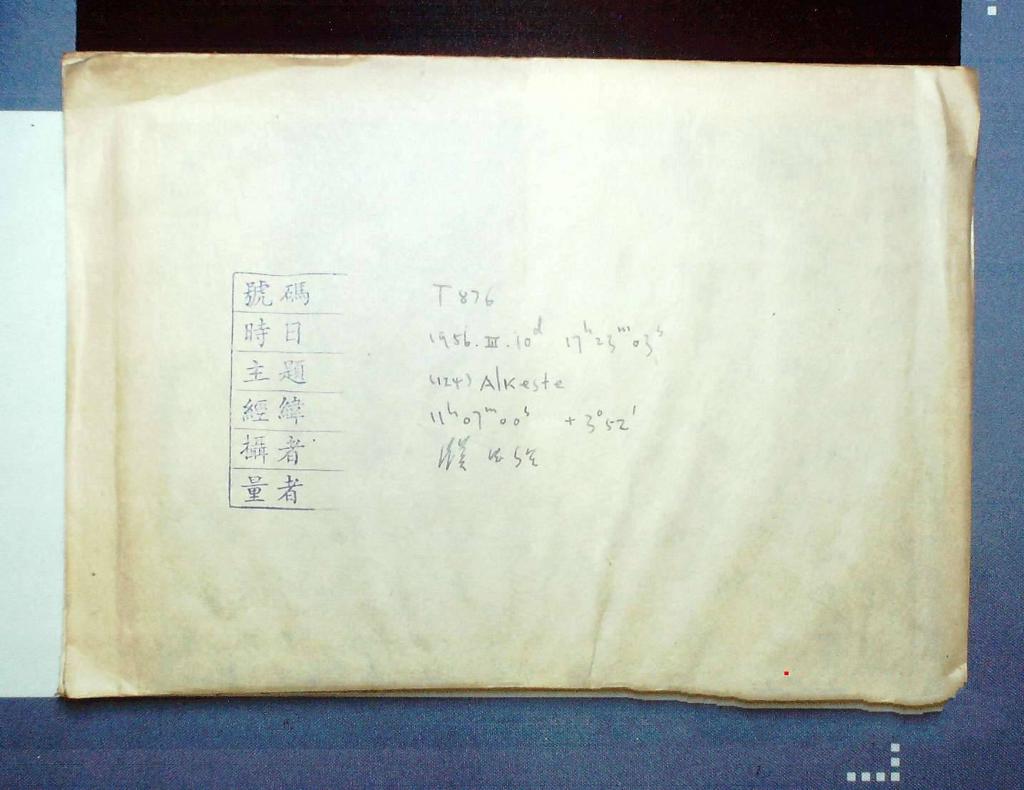 號碼 T 876
時日 1956. III. 10ᵈ 17ʰ23ᵐ03ˢ
主題 (124) Alkeste
經緯 11ʰ07ᵐ00ˢ +3°52'
攝者
量者